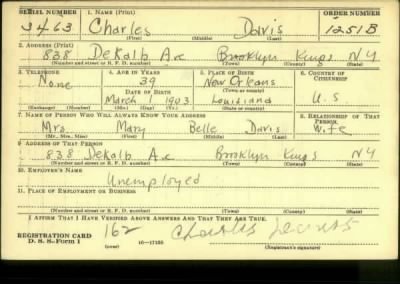 SERIAL NUMBER 1. NAME (Print) ORDER NUMBER
3463 Charles Davis 1251B
(First) (Middle) (Last)
2. ADDRESS (Print)
838 DeKalb Ave Brooklyn Kings NY
(Number and street or R. F. D. number) (Town) (County) (State)
3. TELEPHONE 4. AGE IN YEARS 5. PLACE OF BIRTH 6. COUNTRY OF CITIZENSHIP
None 39 New Orleans
DATE OF BIRTH (Town or county)
March 1903 Louisiana U.S
(Exchange) (Number) (Mo.) (Day) (Yr.) (State or country)
7. NAME OF PERSON WHO WILL ALWAYS KNOW YOUR ADDRESS 8. RELATIONSHIP OF THAT PERSON
Mrs. Mary Belle Davis Wife
(Mr., Mrs., Miss) (First) (Middle) (Last)
9. ADDRESS OF THAT PERSON
838 DeKalb Ave Brooklyn Kings NY
(Number and street or R. F. D. number) (Town) (County) (State)
10. EMPLOYER'S NAME
Unemployed
11. PLACE OF EMPLOYMENT OR BUSINESS
(Number and street or R. F. D. number) (Town) (County) (State)
I AFFIRM THAT I HAVE VERIFIED ABOVE ANSWERS AND THAT THEY ARE TRUE.
REGISTRATION CARD 162 Charles
D. S. S. Form 1 (over) 16—17105 (Registrant's signature)